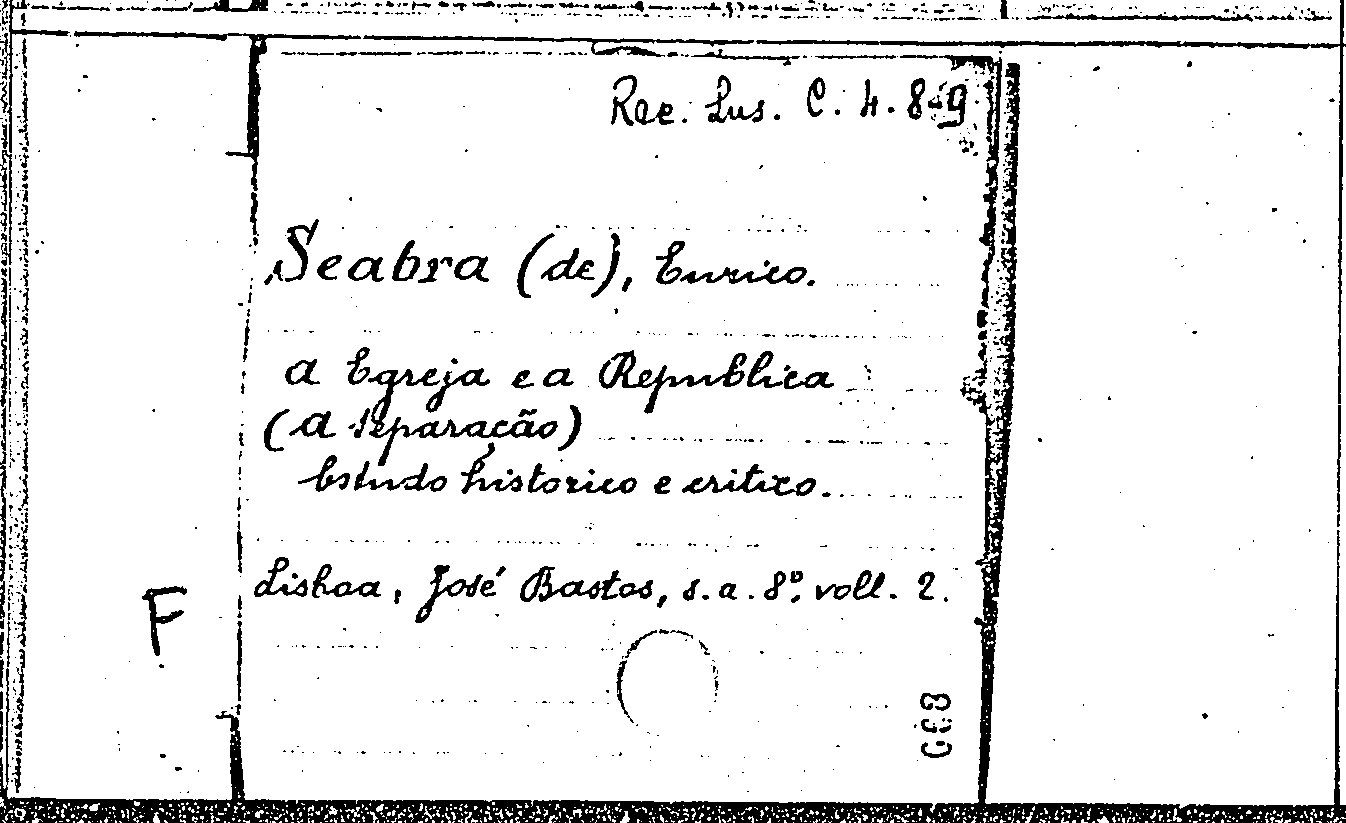 Rac. Lus. C. 4. 8-9
Seabra (de), Eurico.
A Egreja e a Republica
(A Separação)
Estudo historico e critico.
Lisboa, José Bastos, s. a. 8º. voll. 2.
F